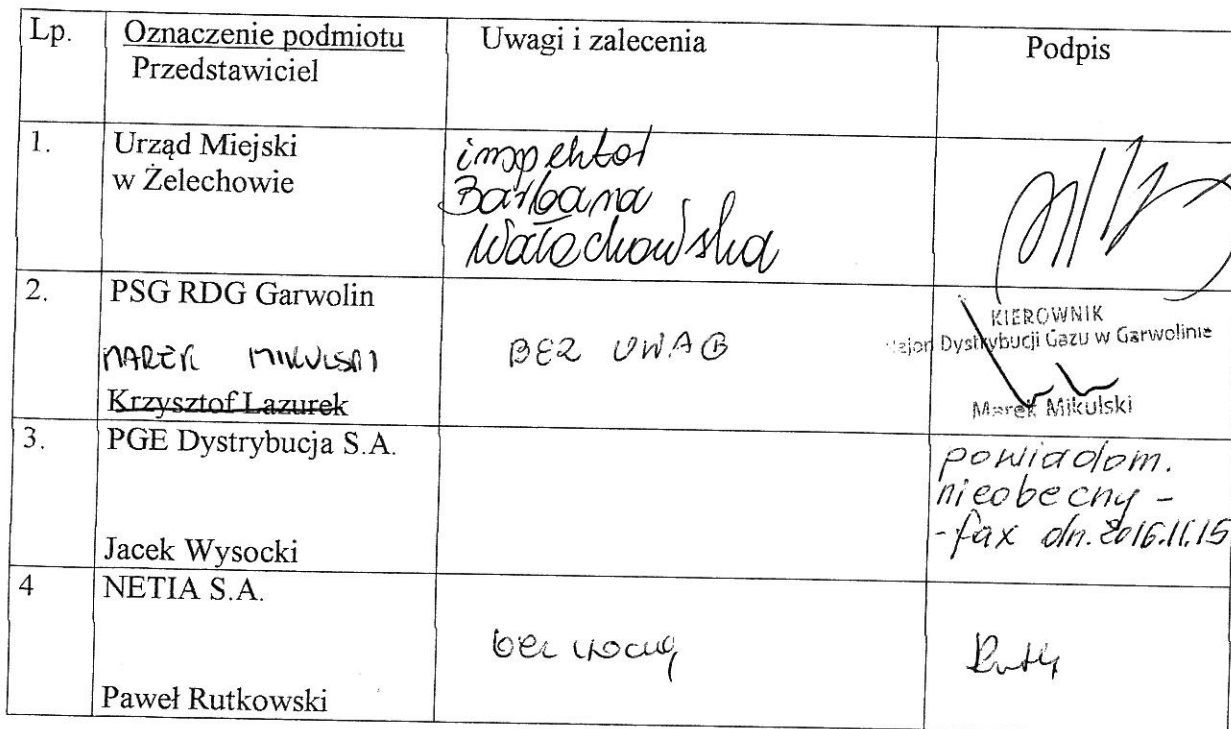 Lp.
Oznaczenie podmiotu
Przedstawiciel
Uwagi i zalecenia
Podpis
1.
Urząd Miejski
w Żelechowie
inspektor
Barbara
Wałachowska
2.
PSG RDG Garwolin
MAREK MIKULSKI
Krzysztof Lazurek
BEZ UWAG
KIEROWNIK
Rejon Dystrybucji Gazu w Garwolinie
Marek Mikulski
3.
PGE Dystrybucja S.A.
Jacek Wysocki
powiadom.
nieobecny -
-fax dn. 2016.11.15
4
NETIA S.A.
Paweł Rutkowski
bez uwag